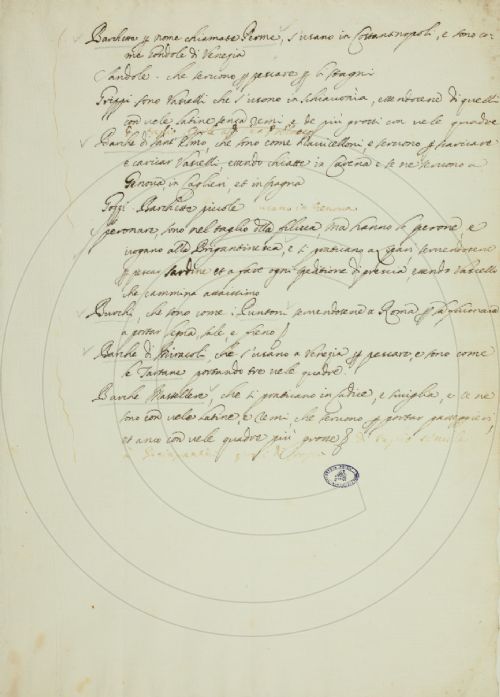 Barchette p nome chiamate Perme, s'usano in Costantinopoli, e sono co-
me Gondole di Venezia
Sandole. che servono p pescare p li stagni
Grippi sono Vasselli che s'usono in Schiavonia, essendovene di quelli
con vele latine senza remi, e de più grossi con vele quadre
Barche di Sant'Elmo, che sono come Navicelloni, e servono p scaricare
e caricar Vasselli essendo chiatte in Carena e se ne servono a
Genova, in Caglieri, et in Spagna
Gozzi Barchette picole usano in Genova
Speronare, sono nel taglio della filuca, ma hanno lo sperone, e
vogano alla Brigantinesca, e si praticano a Capari servendosene
p pescar Sardine et a fare ogni speditione di pressa, essendo Vassello
che cammina assaissimo
Burchi, che sono come i Puntoni servendosene a Roma p la
a portar legna, sale, e fieno
Barche di Miracoli, che s'usano a Venezia p pescare, e sono come
le Tartane portando tre vele quadre.
Barche Vastellere, che si praticano in Cadice, e Siviglia, e ce ne
sono con vele latine, e Remi, che servono p portar passeggieri,
et anco con vele quadre più grosse